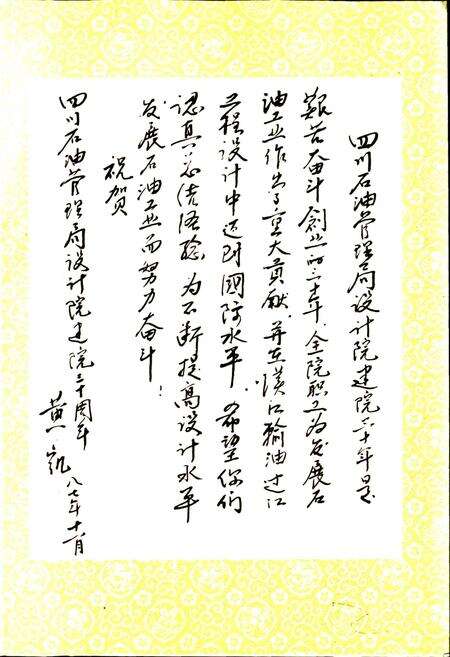 四川石油管理局设计院建院三十年是
艰苦奋斗创业的三十年,全院职工为发展石
油工业作出了重大贡献,并在汉江输油过江
工程设计中达到国际水平。希望你们
认真总结经验,为不断提高设计水平
发展石油工业而努力奋斗!
祝贺
四川石油管理局设计院建院三十周年
黄凯 八七年十一月